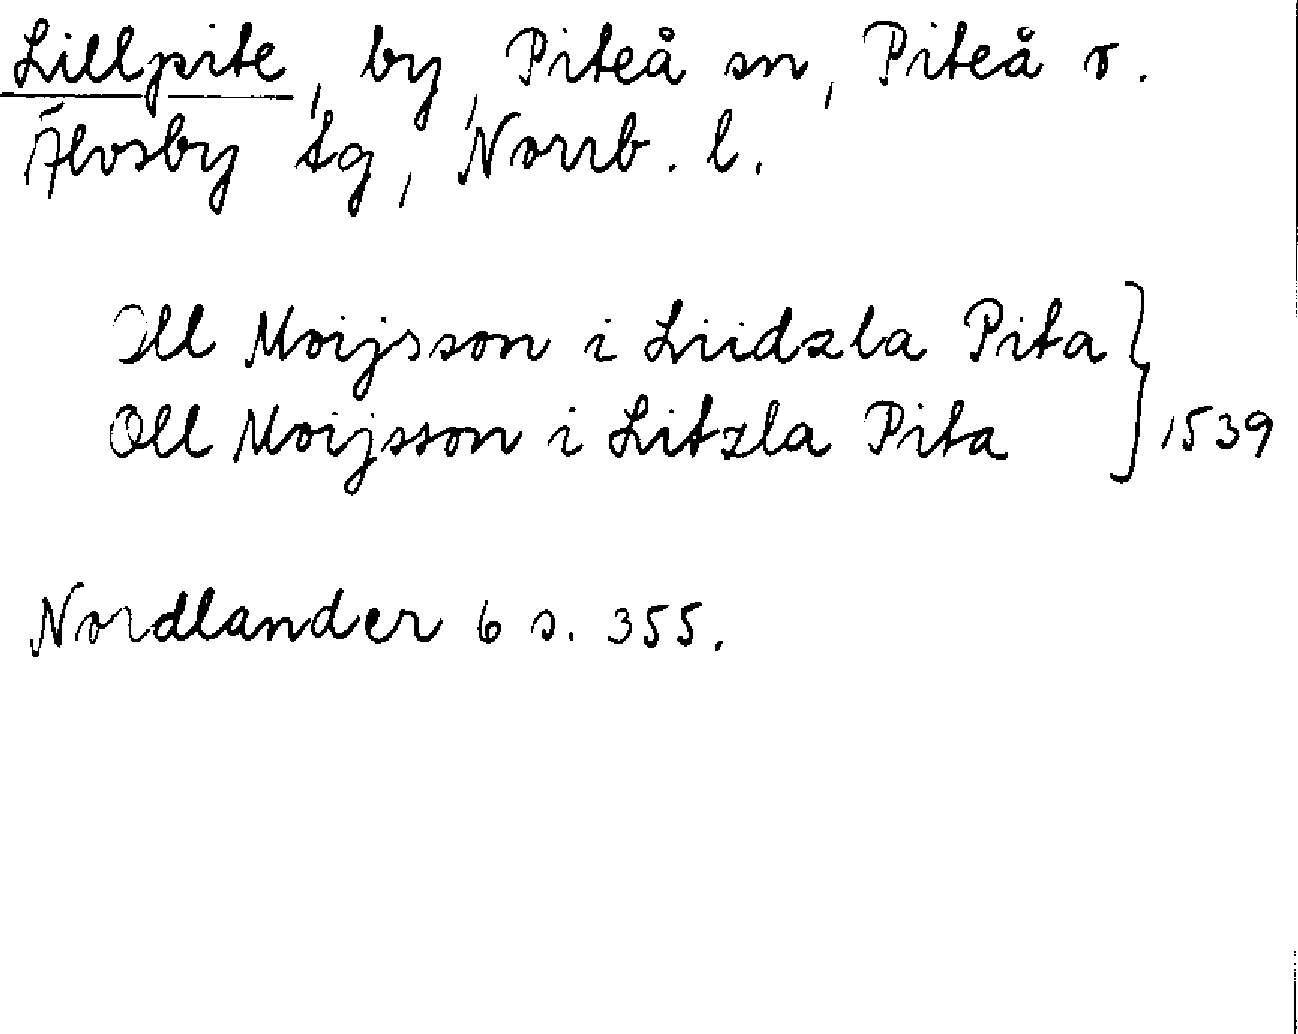 Lillpite, by, Piteå sn, Piteå o.
Älvsby tg, Norrb. l.
Oll Moijsson i Liidzla Pita
Oll Moijsson i Litzla Pita } 1539
Nordlander 6 s. 355.